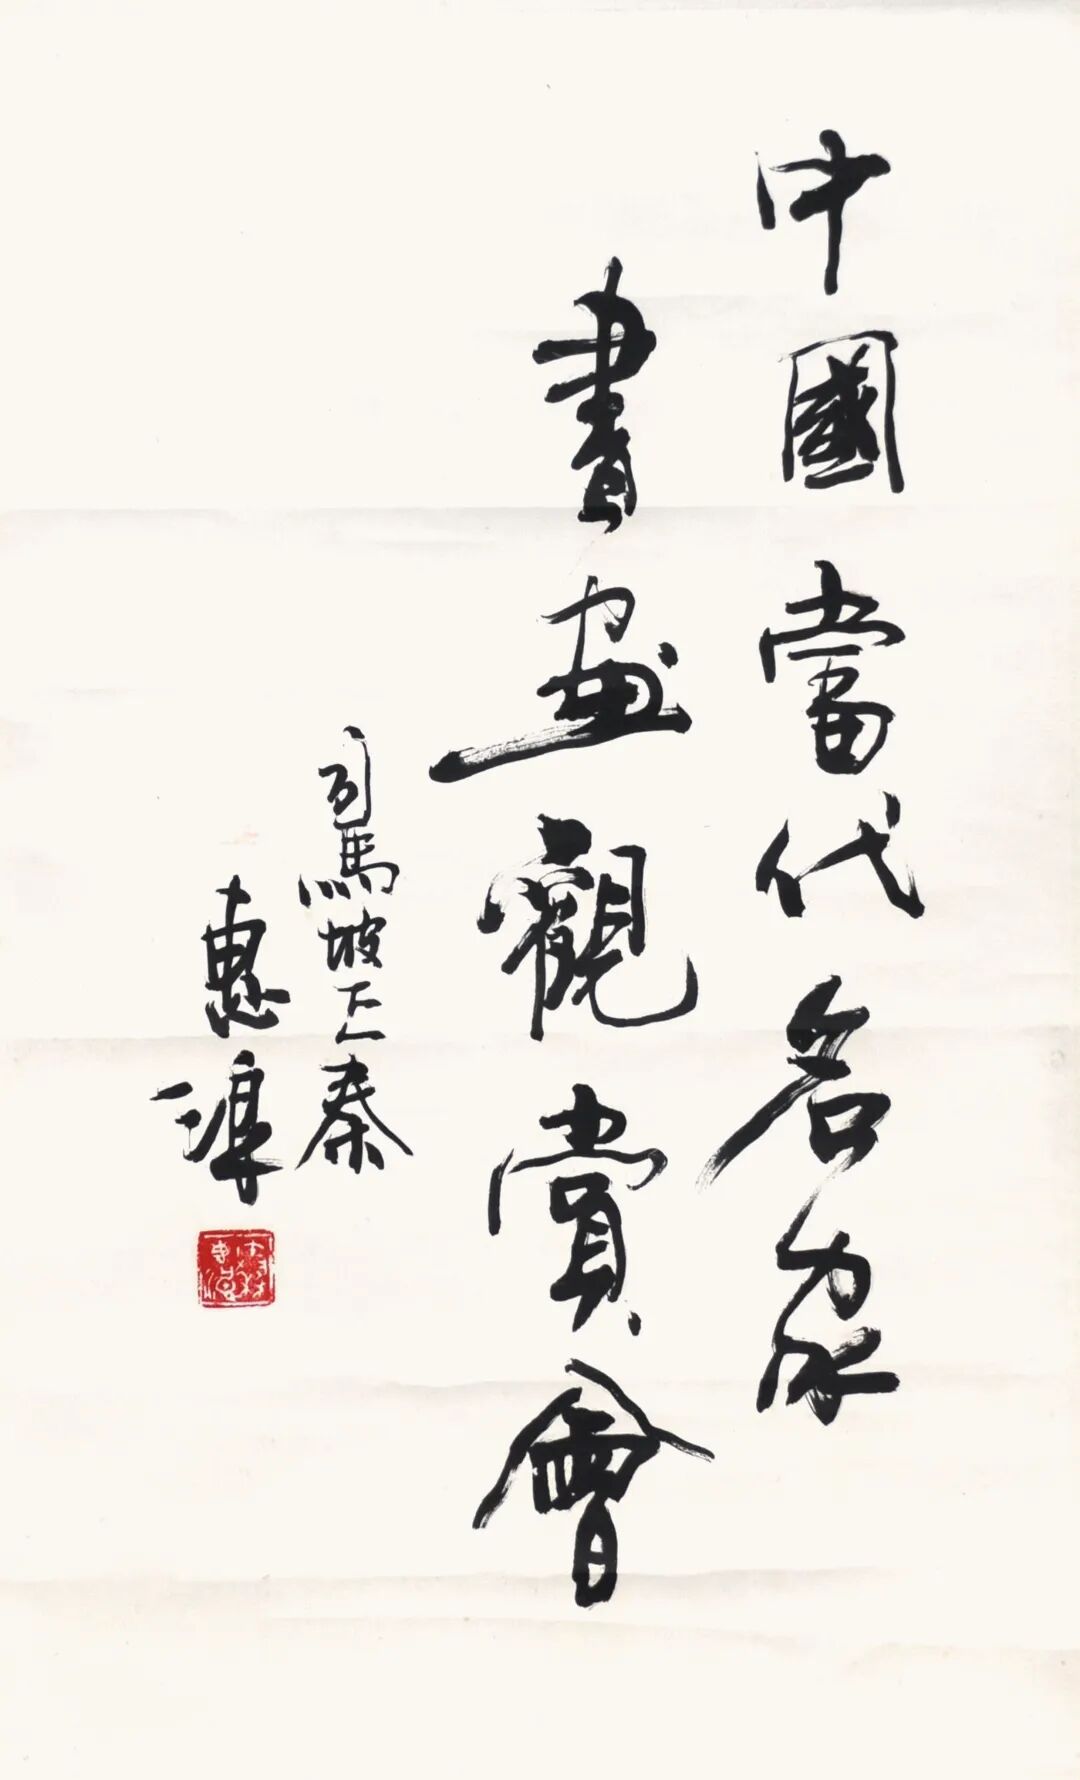 中國當代名家
書画觀賞會
司馬坡上秦
惠浬